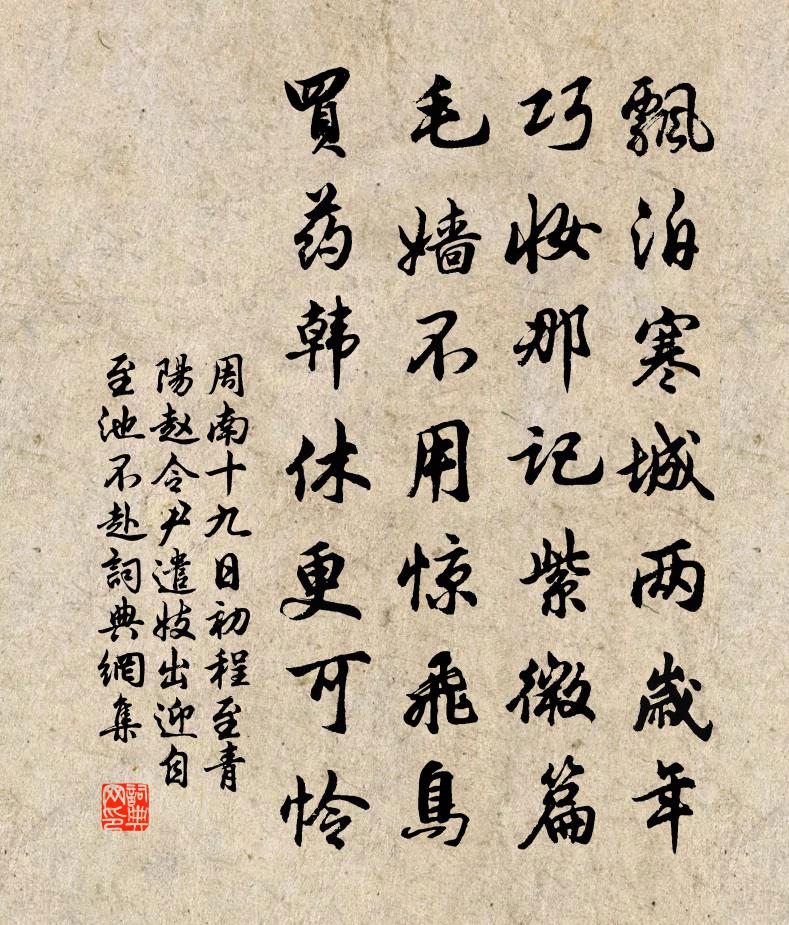 飄泊寒城两歲年
巧妆那记紫微篇
毛嫱不用惊飛鳥
買药韩休更可怜
周南十九日初程至青
陽赵令尹遣妓出迎自
至池不赴詞典網集
詞典网印